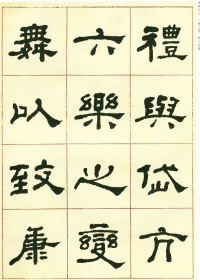 禮與岱亢
六樂之變
舞以致康